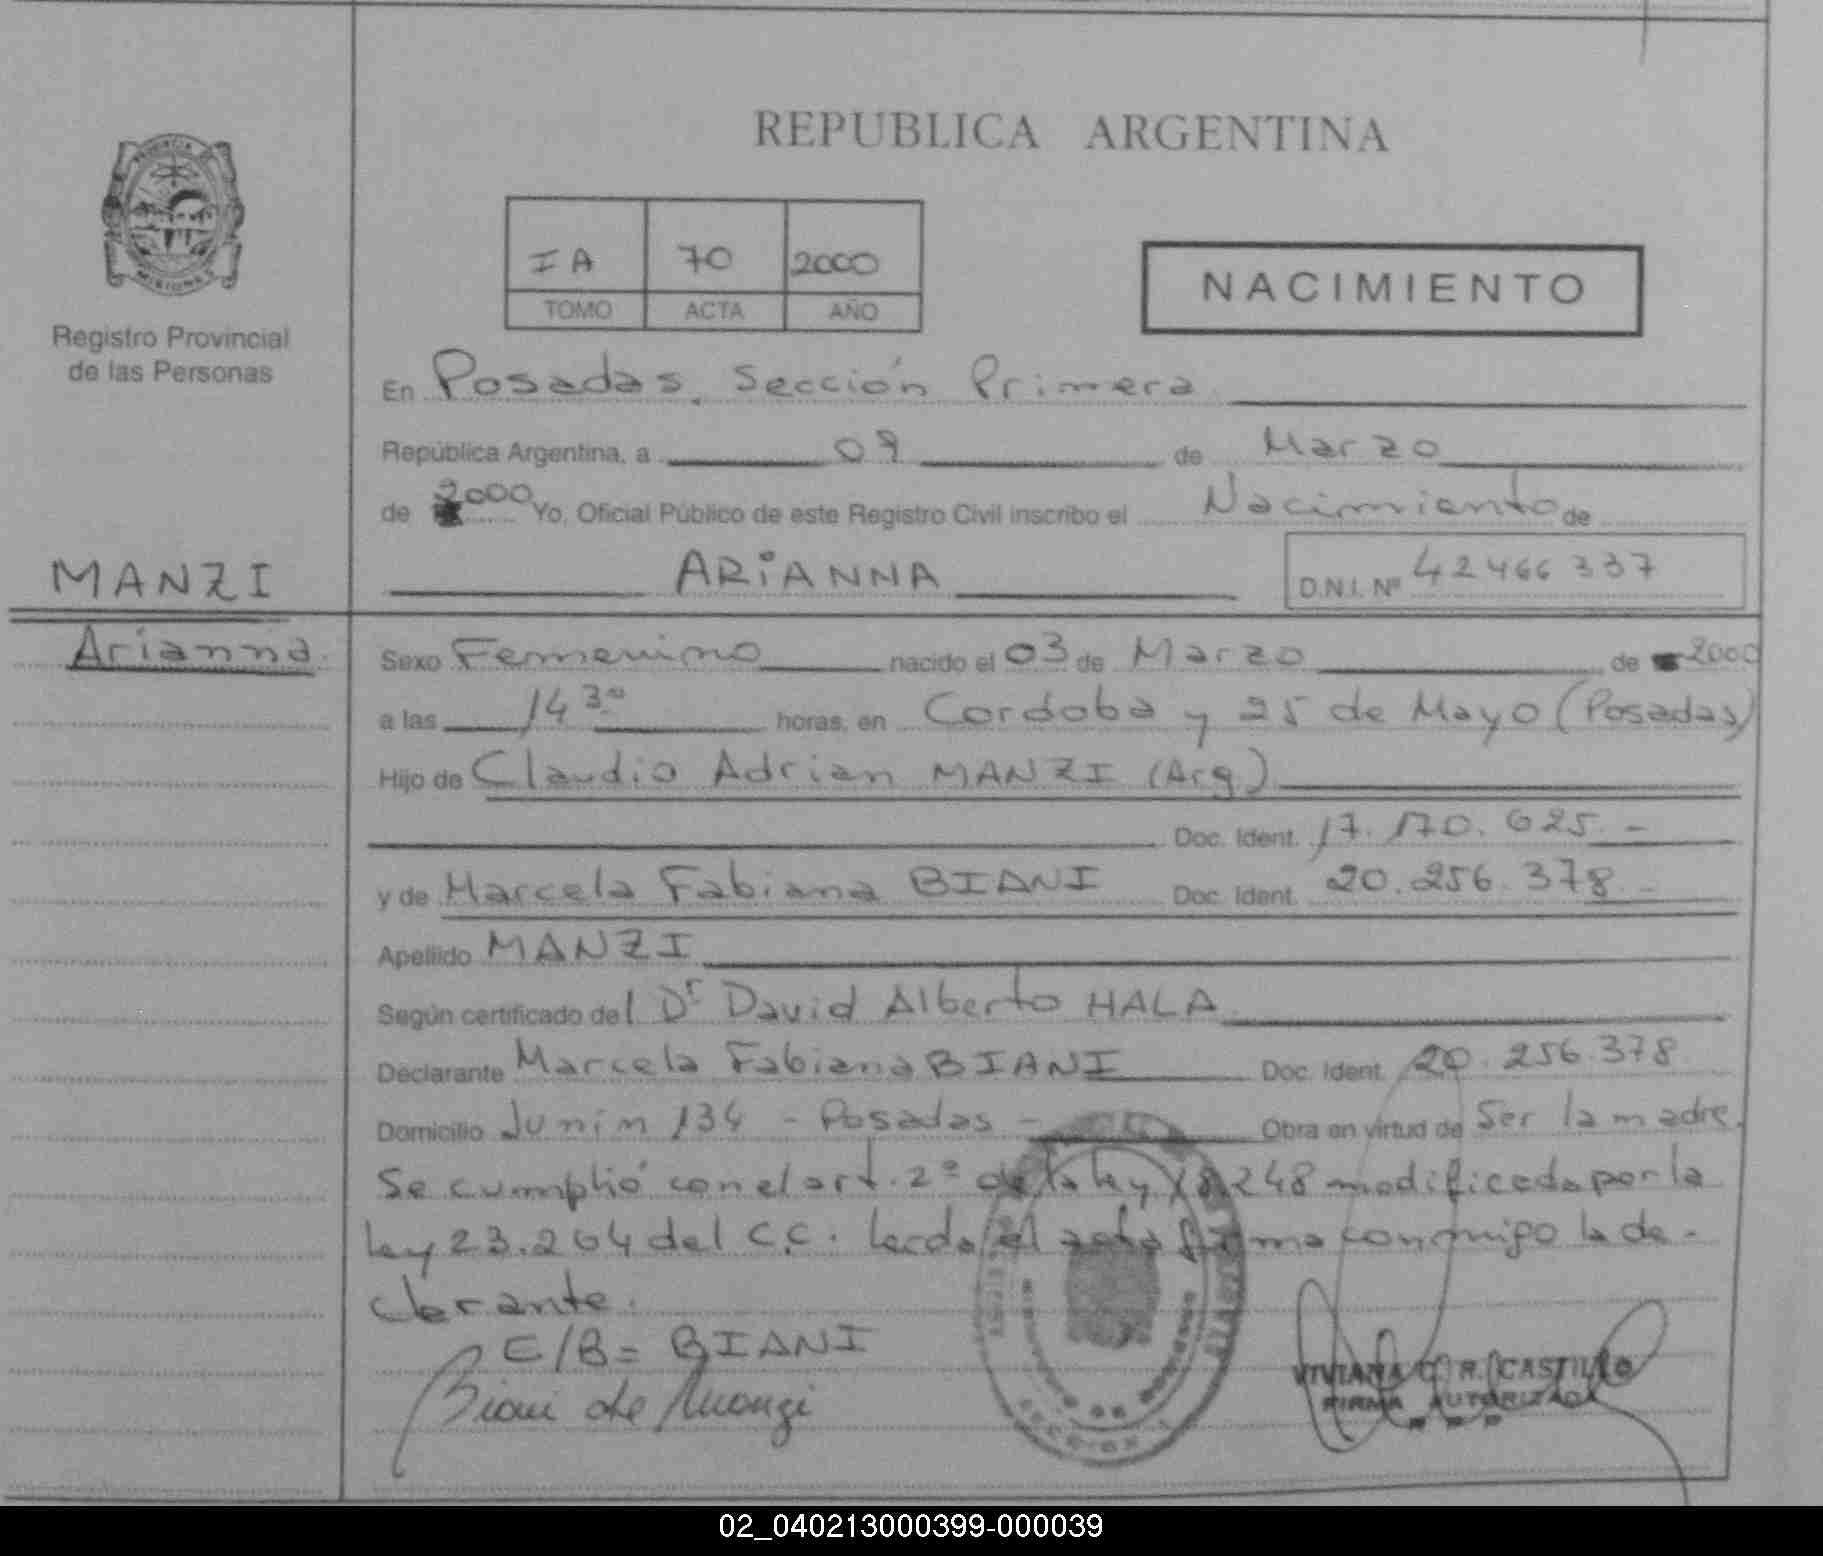 REPUBLICA ARGENTINA
PROVINCIA DE
MISIONES
Registro Provincial
de las Personas
IA 70 2000
TOMO ACTA AÑO
NACIMIENTO
En Posadas, Sección Primera
República Argentina, a 09 de Marzo
de 2000 Yo, Oficial Público de este Registro Civil inscribo el Nacimiento de
MANZI
ARiANNA
D.N.I. Nº 42466337
Arianna.
Sexo Femenino nacido el 03 de Marzo de 2000
a las 14 30 horas, en Cordoba y 25 de Mayo (Posadas)
Hijo de Claudio Adrian MANZI (Arg)
Doc. Ident. 17.170.625.-
y de Marcela Fabiana BIANI Doc. Ident. 20.256.378.-
Apellido MANZI
Según certificado del Dr David Alberto HALA
Declarante Marcela Fabiana BIANI Doc. Ident. 20.256.378
Domicilio Junin 134 - Posadas - Obra en virtud de Ser la madre.
Se cumplió con el art. 2º de la ley 18.248 modificada por la
ley 23.264 del C.C. Leída el acta firma conmigo la de-
clarante.
E/B= BIANI
Biani de Manzi
VIVIANA C. R. CASTILLO
FIRMA AUTORIZADA
02_040213000399-000039